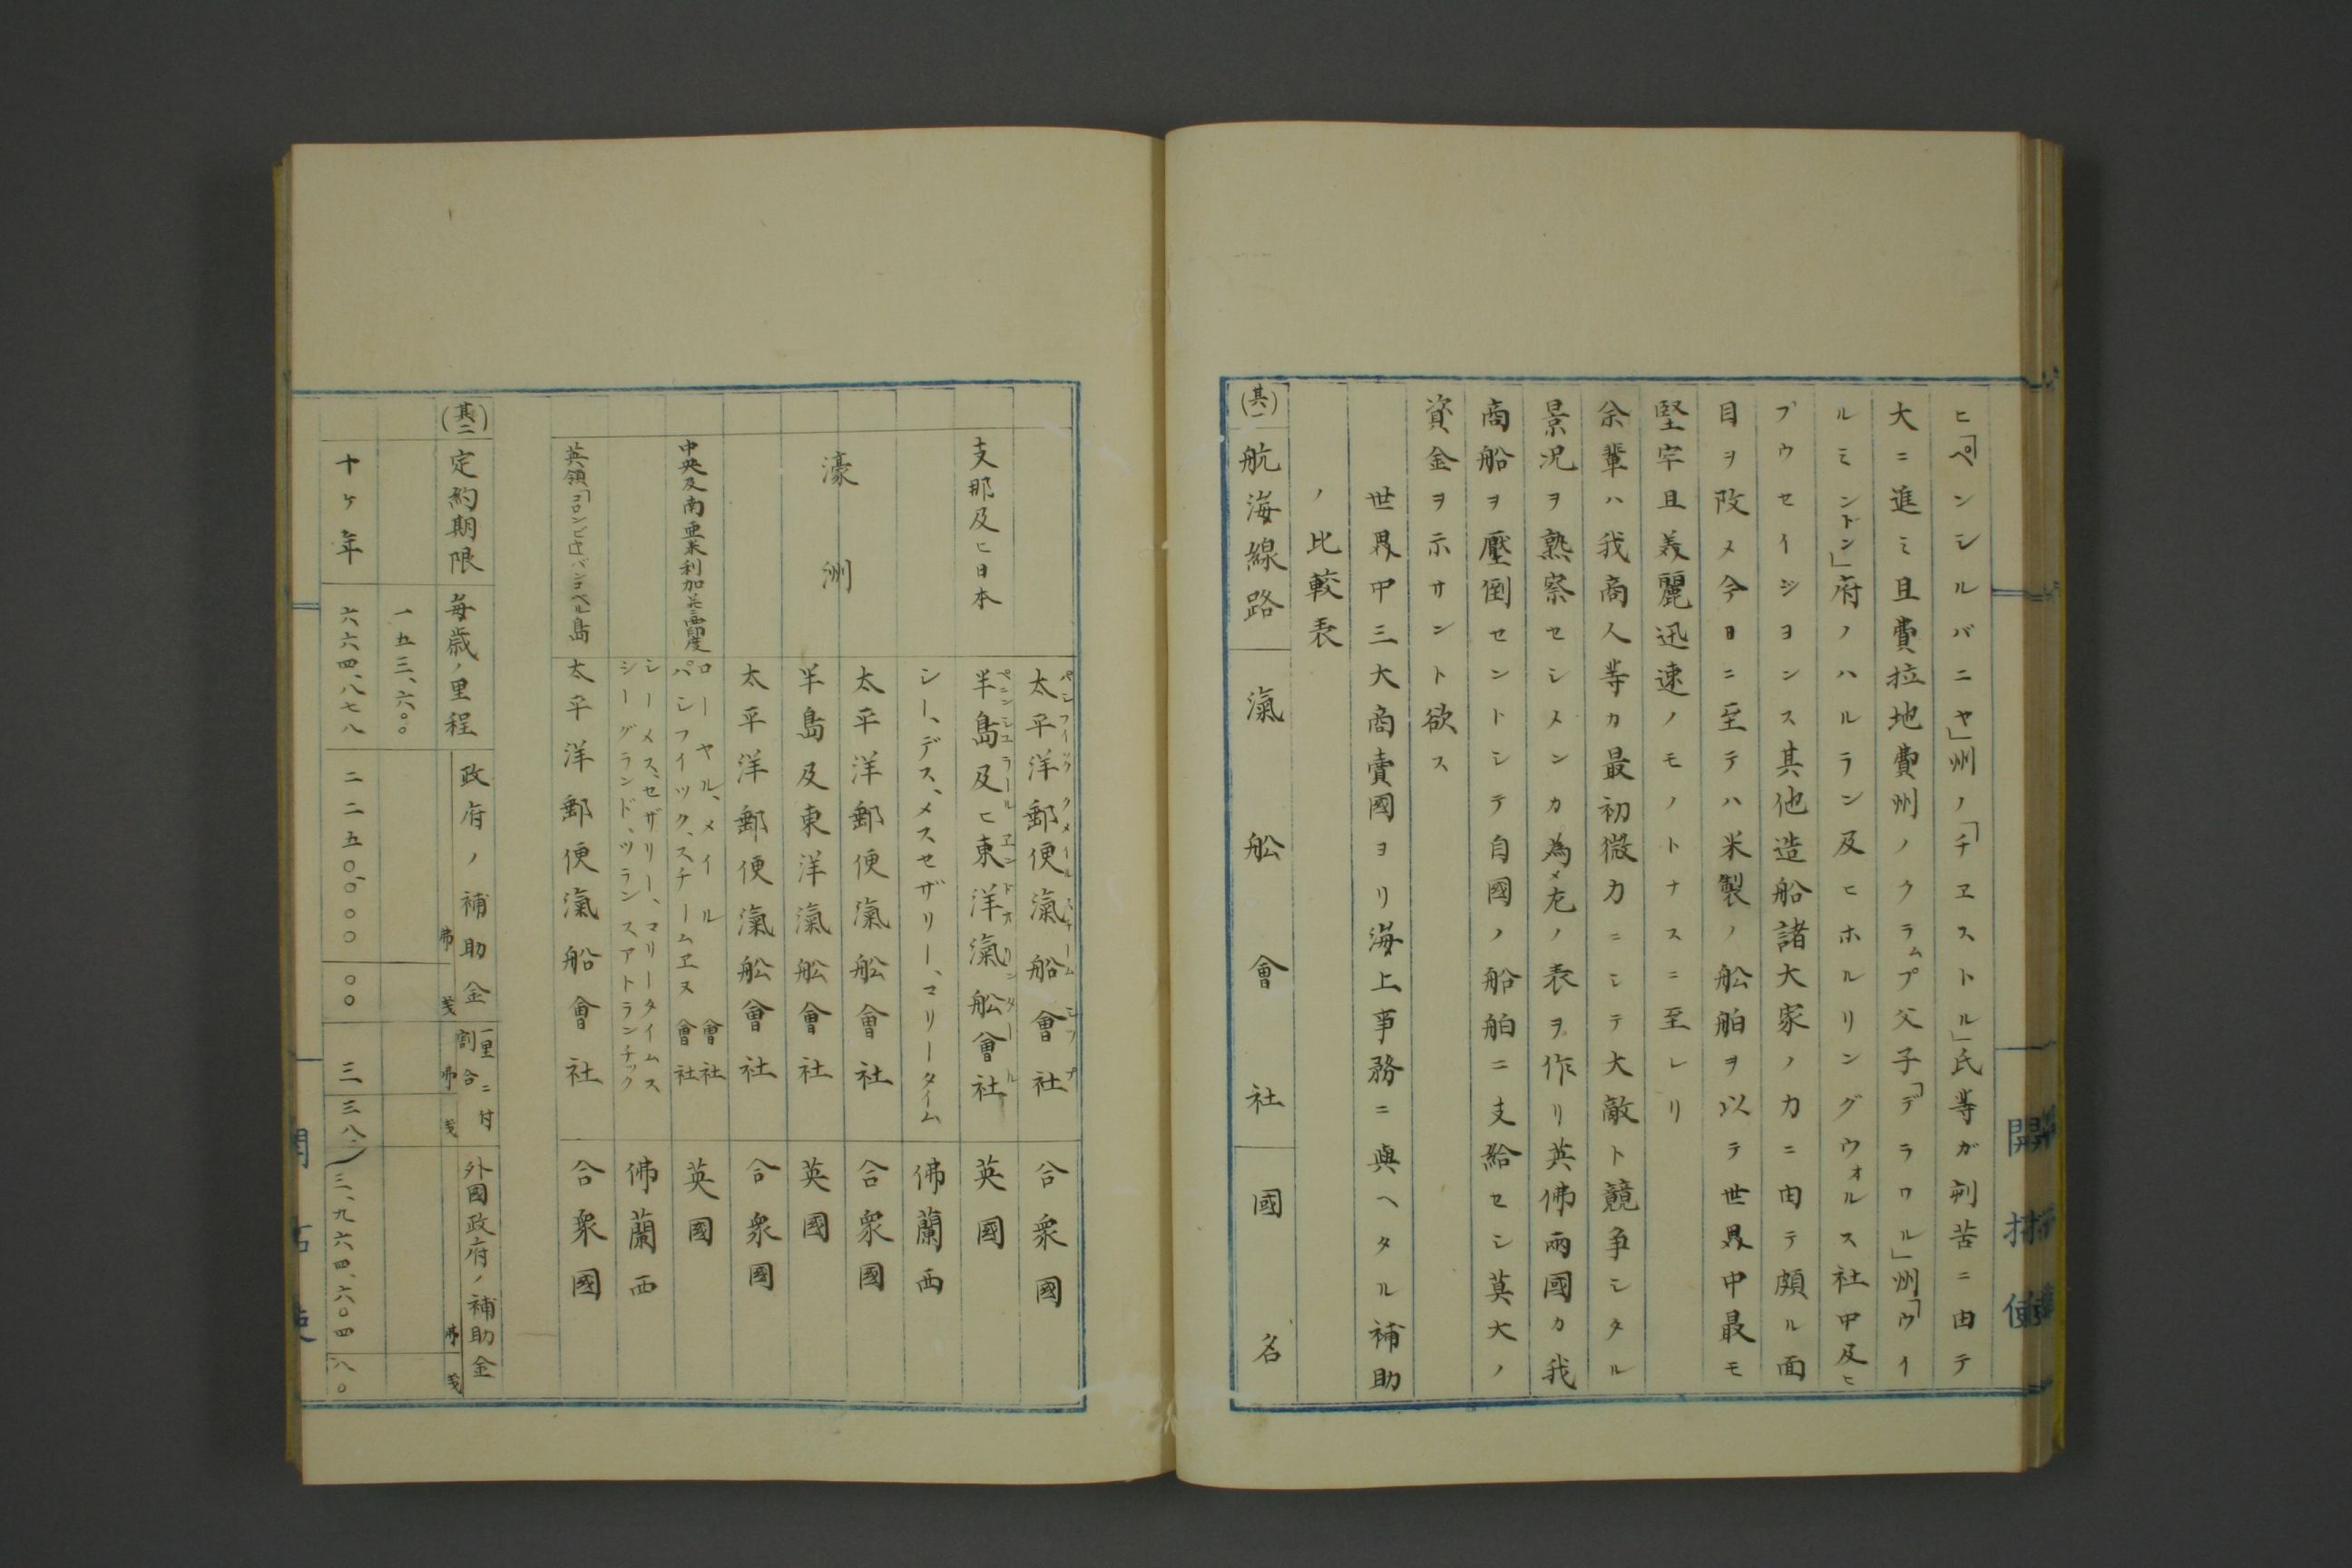 ヒ「ペンシルバニヤ」州ノ「チヱストル」氏等ガ刻苦ニ由テ
大ニ進ミ且費拉地費州ノクラムプ父子「デラワル」州「ウイ
ルミントン」府ノハルラン及ヒホルリングウォルス社中及ヒ
プウセイジヨンス其他造船諸大家ノ力ニ由テ頗ル面
目ヲ改メ今日ニ至テハ米製ノ舩舶ヲ以テ世界中最モ
堅牢且美麗迅速ノモノトナスニ至レリ
余輩ハ我商人等カ最初微力ニシテ大敵ト競争シタル
景况ヲ熟察セシメンカ為メ左ノ表ヲ作リ英佛兩國カ我
商船ヲ壓倒セントシテ自國ノ船舶ニ支給セシ莫大ノ
資金ヲ示サント欲ス
世界中三大商賣國ヨリ海上事務ニ與ヘタル補助
ノ比較表
(其一) 航海線路 滊舩會社 國名
支那及ヒ日本 太平洋郵便滊船會社 合衆國
パシフイック メイル スチーム シップ
半島及ヒ東洋滊舩會社 英國
ペンシユラール ヱンド オリンタール
シー、デス、メスセザリー、マリータイム 佛蘭西
濠洲 太平洋郵便滊舩會社 合衆國
半島及東洋滊舩會社 英國
太平洋郵便滊舩會社 合衆國
中央及南亜米利加並ニ西印度 ローヤル、メイル會社
パシフイック、スチームヱヌ會社 英國
シーメス、セザリー、マリータイムス
シーグランド、ツランスアトランチック 佛蘭西
英領「コロンビヤ」バンコベル島 太平洋郵便滊船會社 合衆國
(其二) 定約期限 毎歳ノ里程 政府ノ補助金 弗 戔 一里ニ付割合 弗 戔 外國政府ノ補助金 弗 戔
一五三、六〇〇
十ケ年 六六四、八七八 二二五〇、〇〇〇 〇〇 三 三八 三、九六四、六〇四 八〇
開拓使
開拓使